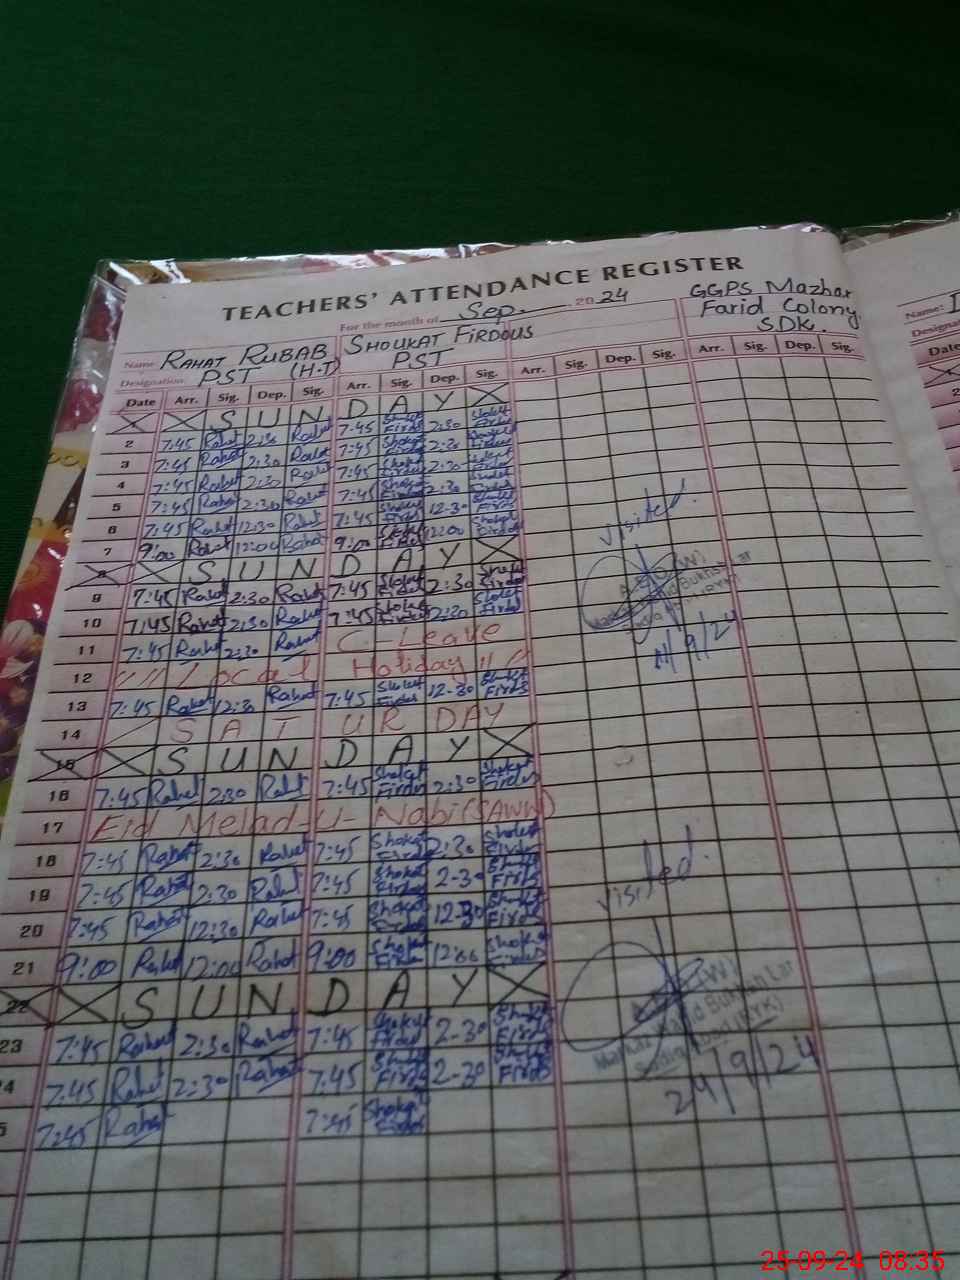 TEACHERS' ATTENDANCE REGISTER
For the month of Sep. 2024
GGPS Mazhar
Farid Colony
SDK.
Name RAHAT RUBAB SHOUKAT FIRDOUS
Designation PST (H.T) PST
Date Arr. Sig. Dep. Sig. Arr. Sig. Dep. Sig. Arr. Sig. Dep. Sig. Arr. Sig. Dep. Sig.
1 SUNDAY
2 7:45 Rahat 2:30 Rahat 7:45 Shokat Firdos 2:30 Shokat Firdos
3 7:45 Rahat 2:30 Rahat 7:45 Shokat Firdos 2:30 Shokat Firdos
4 7:45 Rahat 2:30 Rahat 7:45 Shokat Firdos 2:30 Shokat Firdos
5 7:45 Rahat 2:30 Rahat 7:45 Shokat Firdos 2:30 Shokat Firdos
6 7:45 Rahat 12:30 Rahat 7:45 Shokat Firdos 12-30 Shokat Firdos
7 9:00 Rahat 12:00 Rahat 9:00 Shokat Firdos 12:00 Shokat Firdos
visited.
8 SUNDAY
9 7:45 Rahat 2:30 Rahat 7:45 Shokat Firdos 2:30 Shokat Firdos
10 7:45 Rahat 2:30 Rahat 7:45 Shokat Firdos 2:30 Shokat Firdos
11 7:45 Rahat 2:30 Rahat C. Leave
12 Local Holiday
13 7:45 Rahat 12:30 Rahat 7:45 Shokat Firdos 12-30 Shokat Firdos
14 SATURDAY
15 SUNDAY
16 7:45 Rahat 2:30 Rahat 7:45 Shokat Firdos 2:30 Shokat Firdos
17 Eid Melad-U-Nabi (SAWW)
18 7:45 Rahat 2:30 Rahat 7:45 Shokat Firdos 2:30 Shokat Firdos
19 7:45 Rahat 2:30 Rahat 7:45 Shokat Firdos 2-30 Shokat Firdos
20 7:45 Rahat 12:30 Rahat 7:45 Shokat Firdos 12-30 Shokat Firdos
visited.
21 9:00 Rahat 12:00 Rahat 9:00 Shokat Firdos 12:00 Shokat Firdos
22 SUNDAY
23 7:45 Rahat 2:30 Rahat 7:45 Shokat Firdos 2-30 Shokat Firdos
24 7:45 Rahat 2:30 Rahat 7:45 Shokat Firdos 2-30 Shokat Firdos
7:45 Rahat 7:45 Shokat Firdos
(W)
Markaz Wahid Bukhsh Lar
Sadiq Abad (RYK)
24/9/24
Name:
Date
25-09-24 08:35